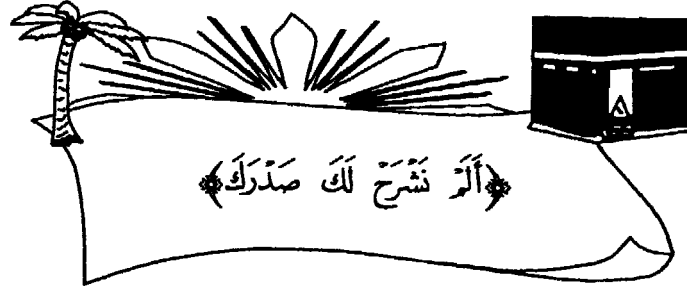 ﴿أَلَمْ نَشْرَحْ لَكَ صَدْرَكَ﴾